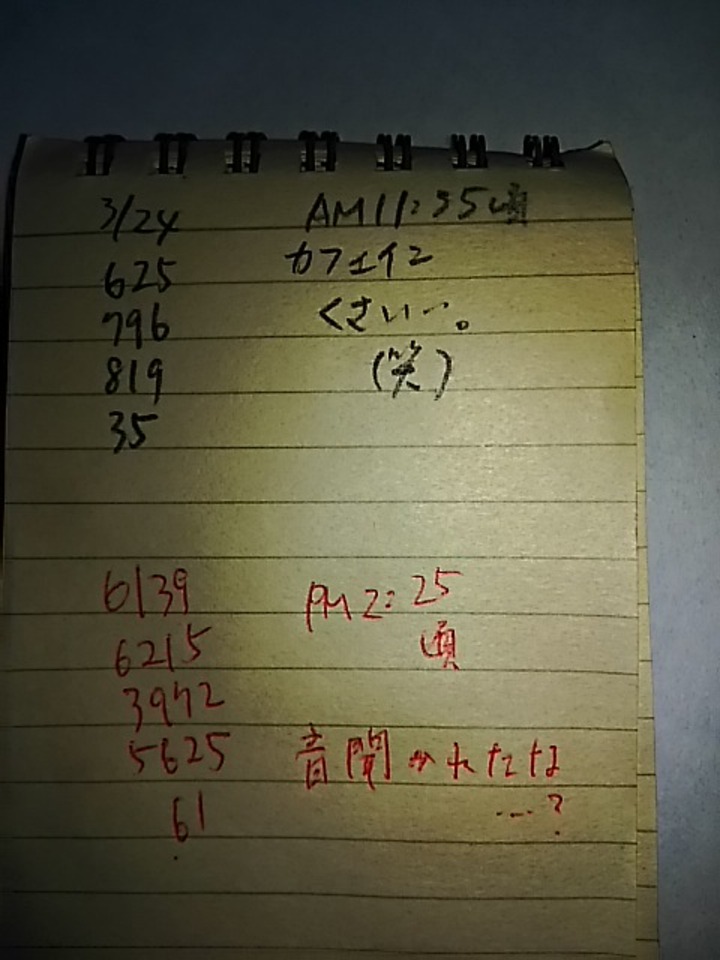 3/24 AM11:55頃
625 カフェイン
796 くさい…。
819 (笑)
35
6139 PM2:25
6215 頃
3972
5625 音聞かれたな
61 …?